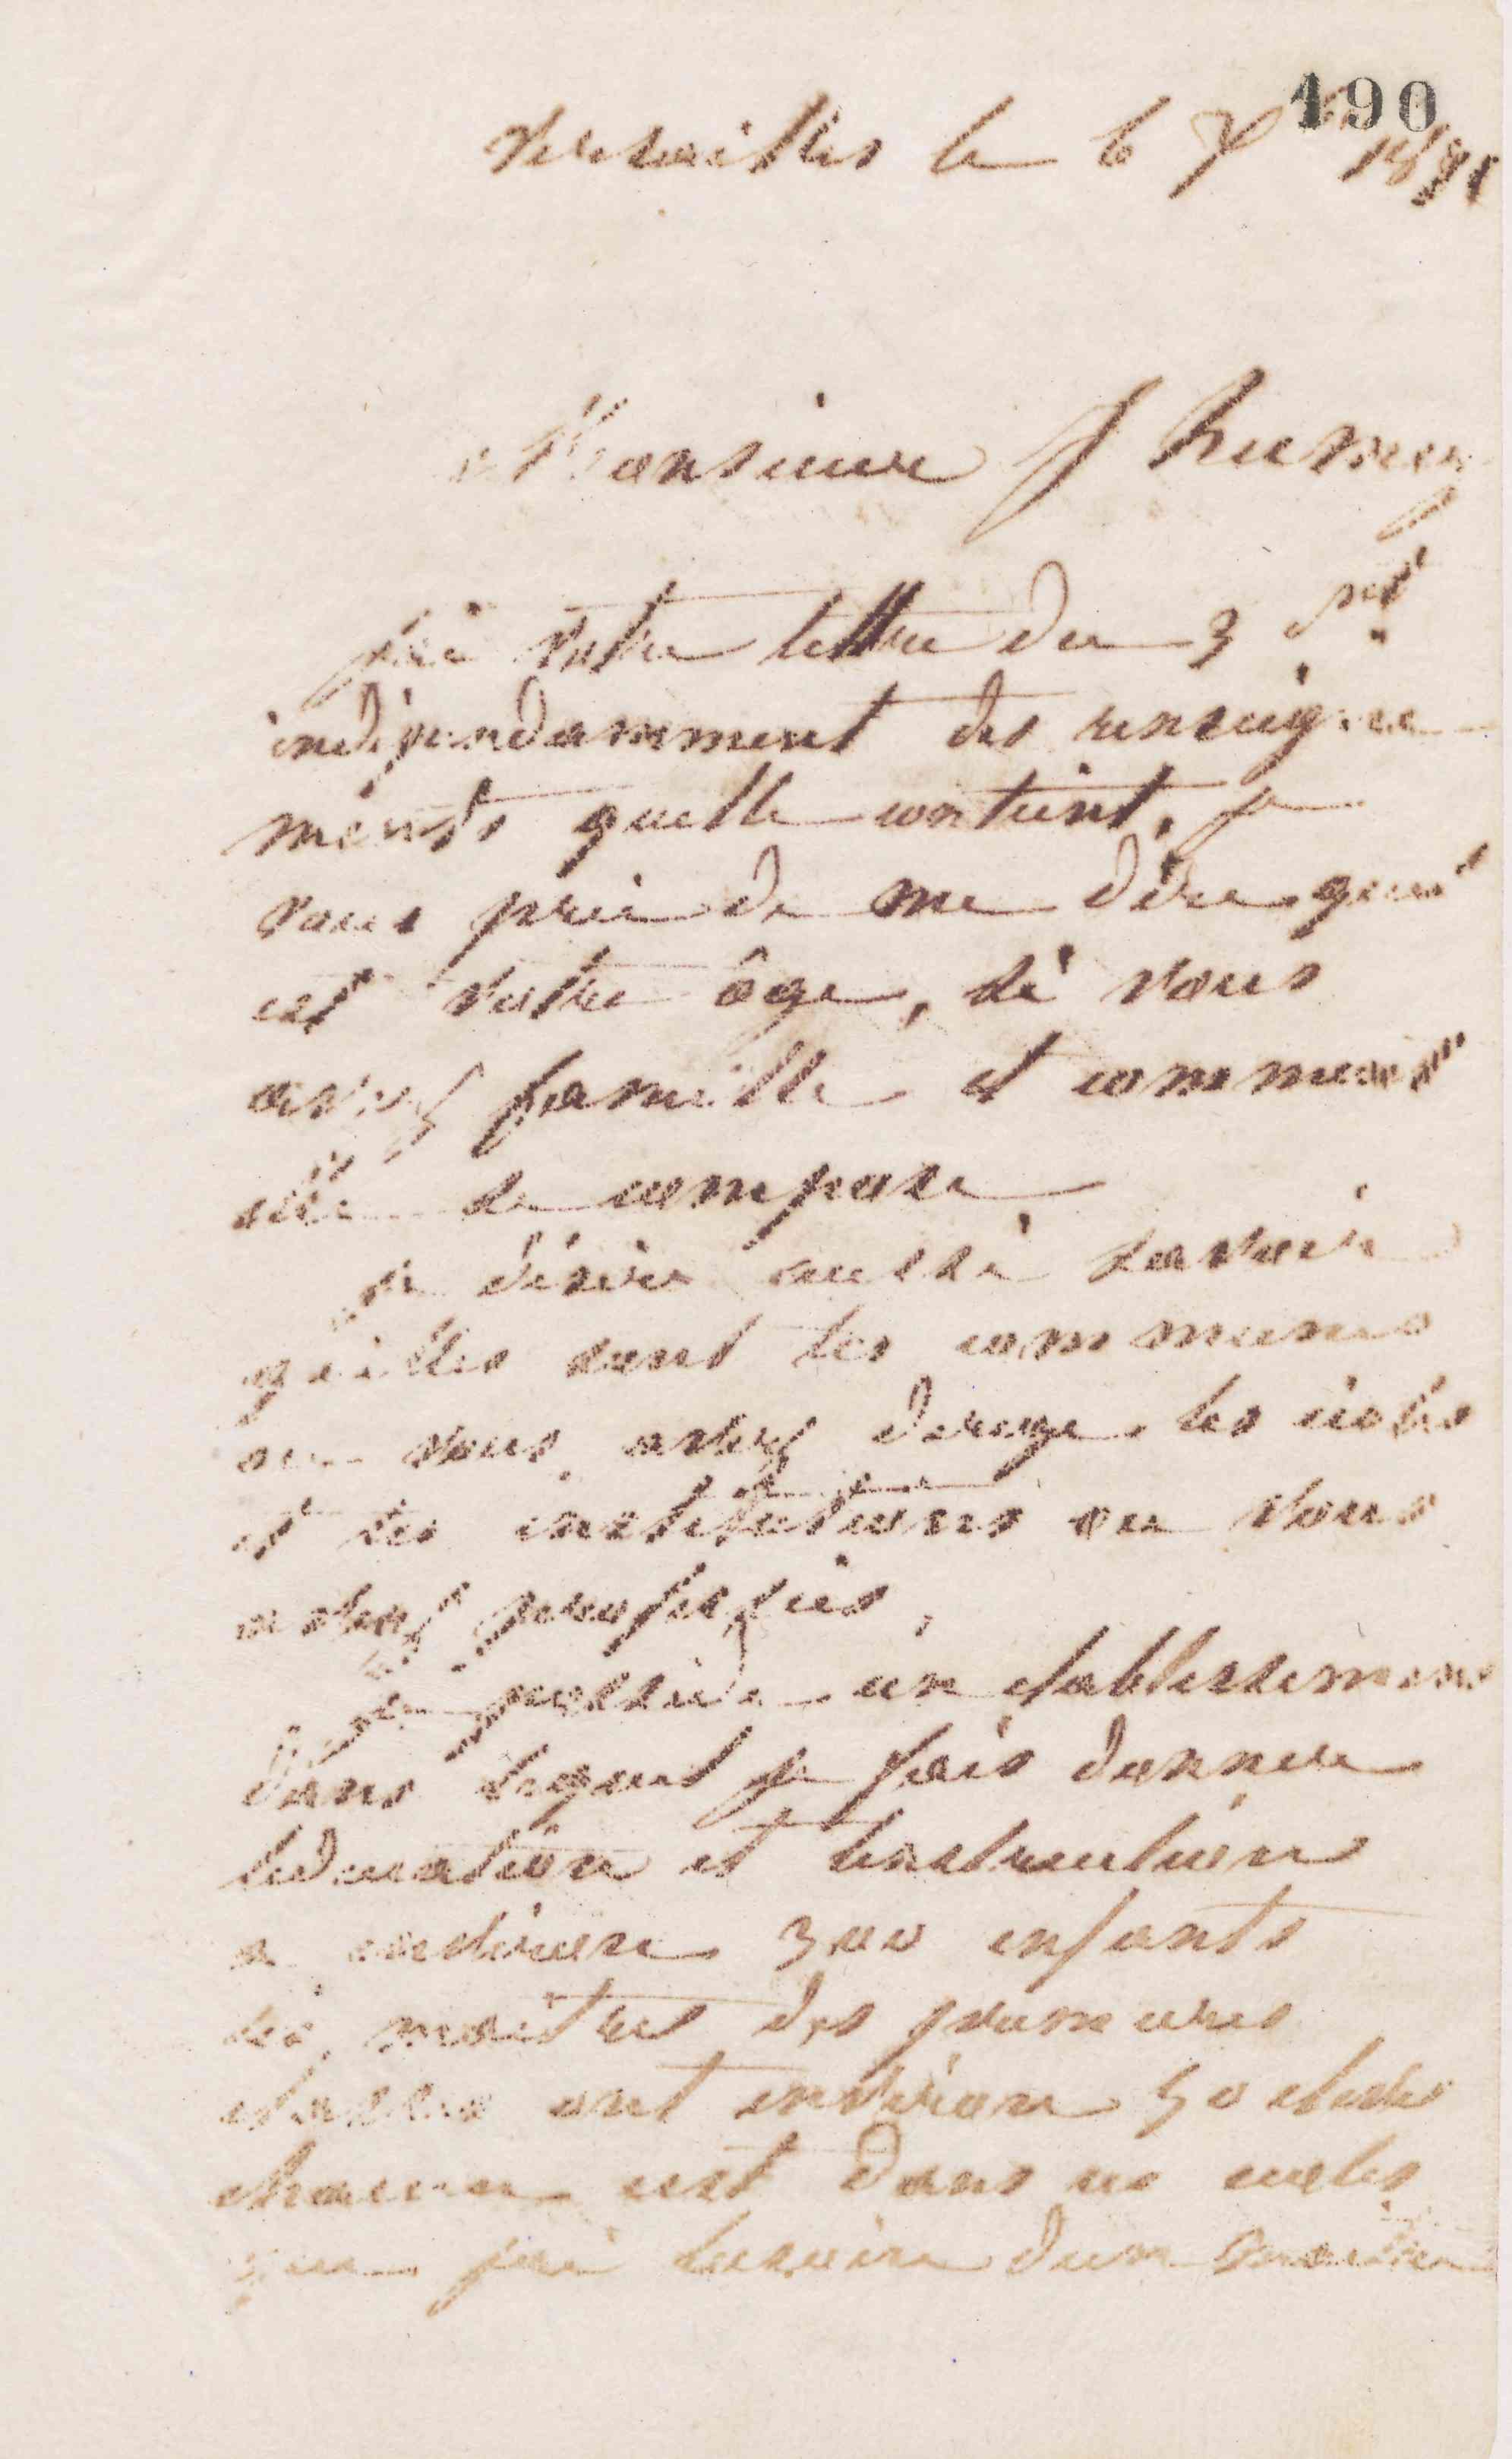 190
Versailles le 6 7bre 1871
Monsieur Jhumez
j'ai votre lettre du 3 ct
indépendamment des renseigne
ments quelle contient, je
vous prie de me dire quel
est votre âge, si vous
avez famille et comment
elle se compose
je désire aussi savoir
quelles sont les communes
ou vous avez dirigé les écoles
et les institutions ou vous
avez professés,
je possède un etablissement
dans lequel je fais donner
léducation et linstruction
a environ 300 enfants
les maitres des premieres
classes ont environ 50 eleves
chacun cest dans une
que j'ai besoin dun maitre